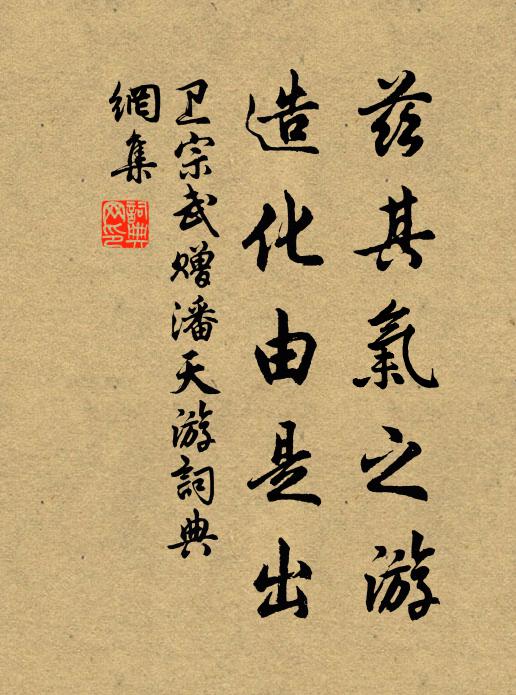 茲其氣之游
造化由是出
卫宗武赠潘天游詞典
網集
詞典
网印